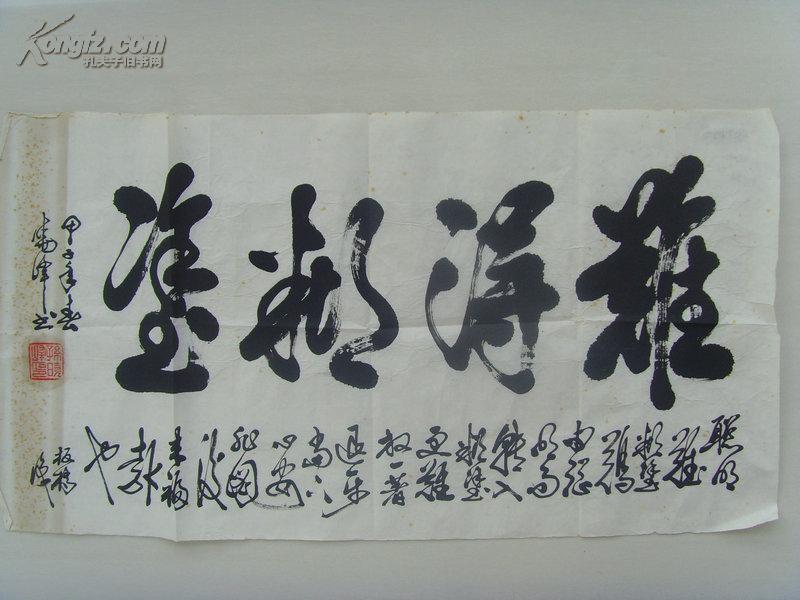 難得糊塗
聪明
難
糊塗
難
由聪
明而
轉入
糊塗
更難
放一著
退一步
當下
心安
非圖
後
来福
報
也
板橋
識
甲子年春
书
Kongfz.com
孔夫子旧书网